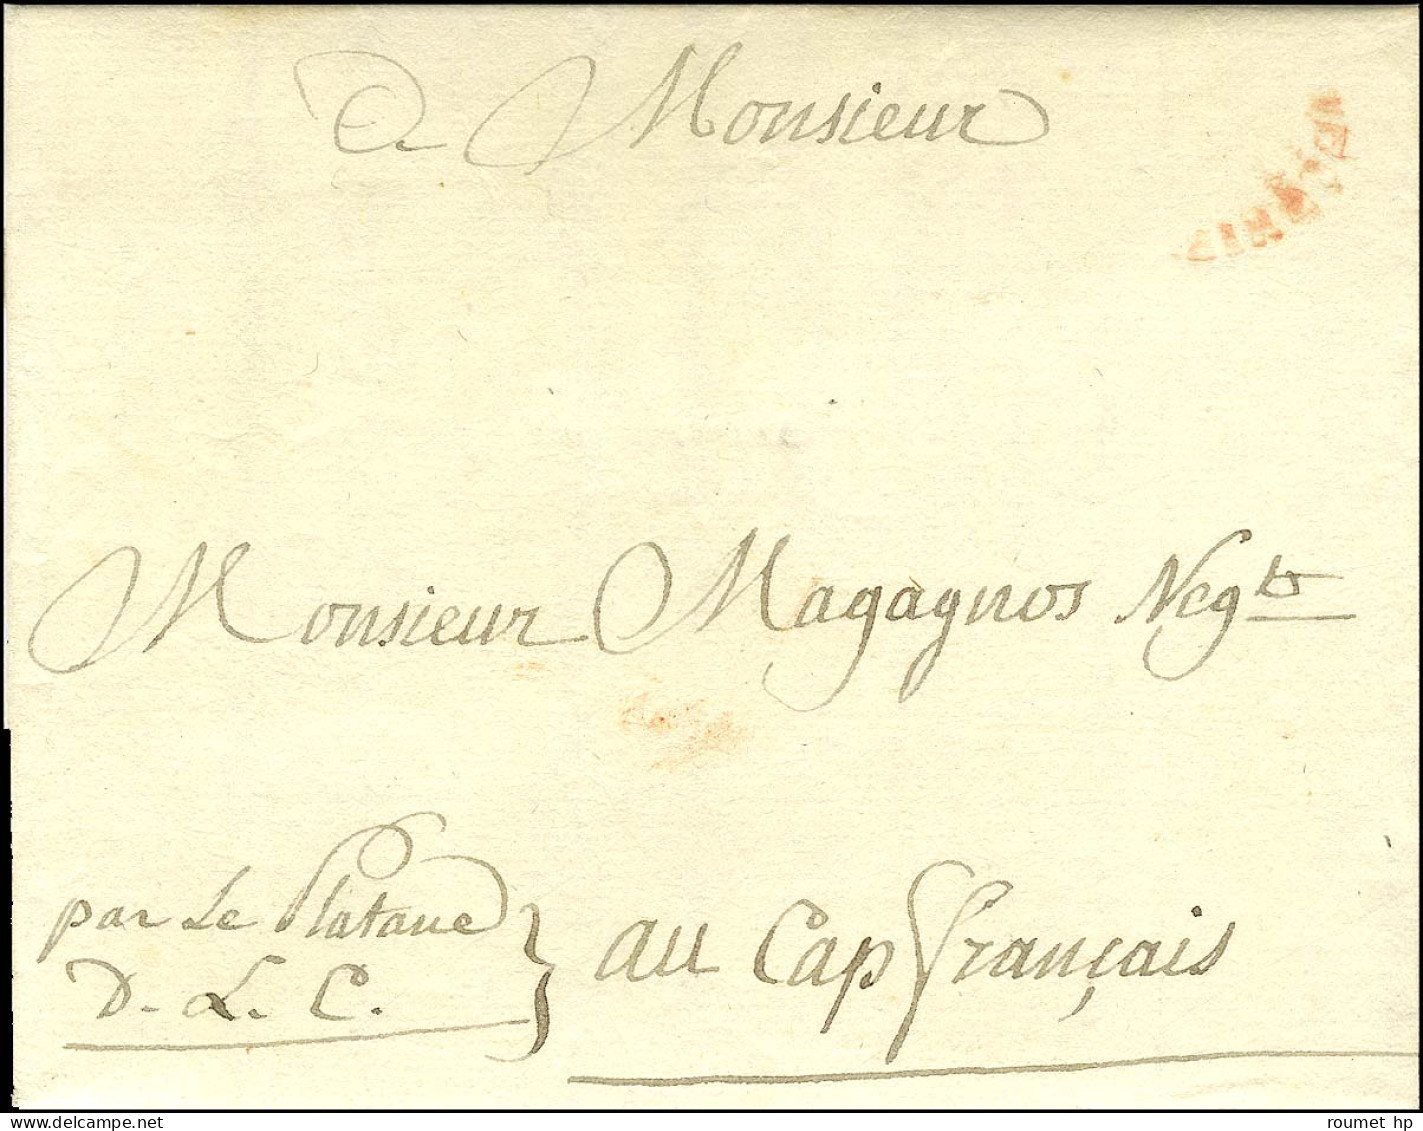 A Monsieur
Monsieur Magagnos Negt
par Le Platane
D. L. C.
au Cap français
roumet hp